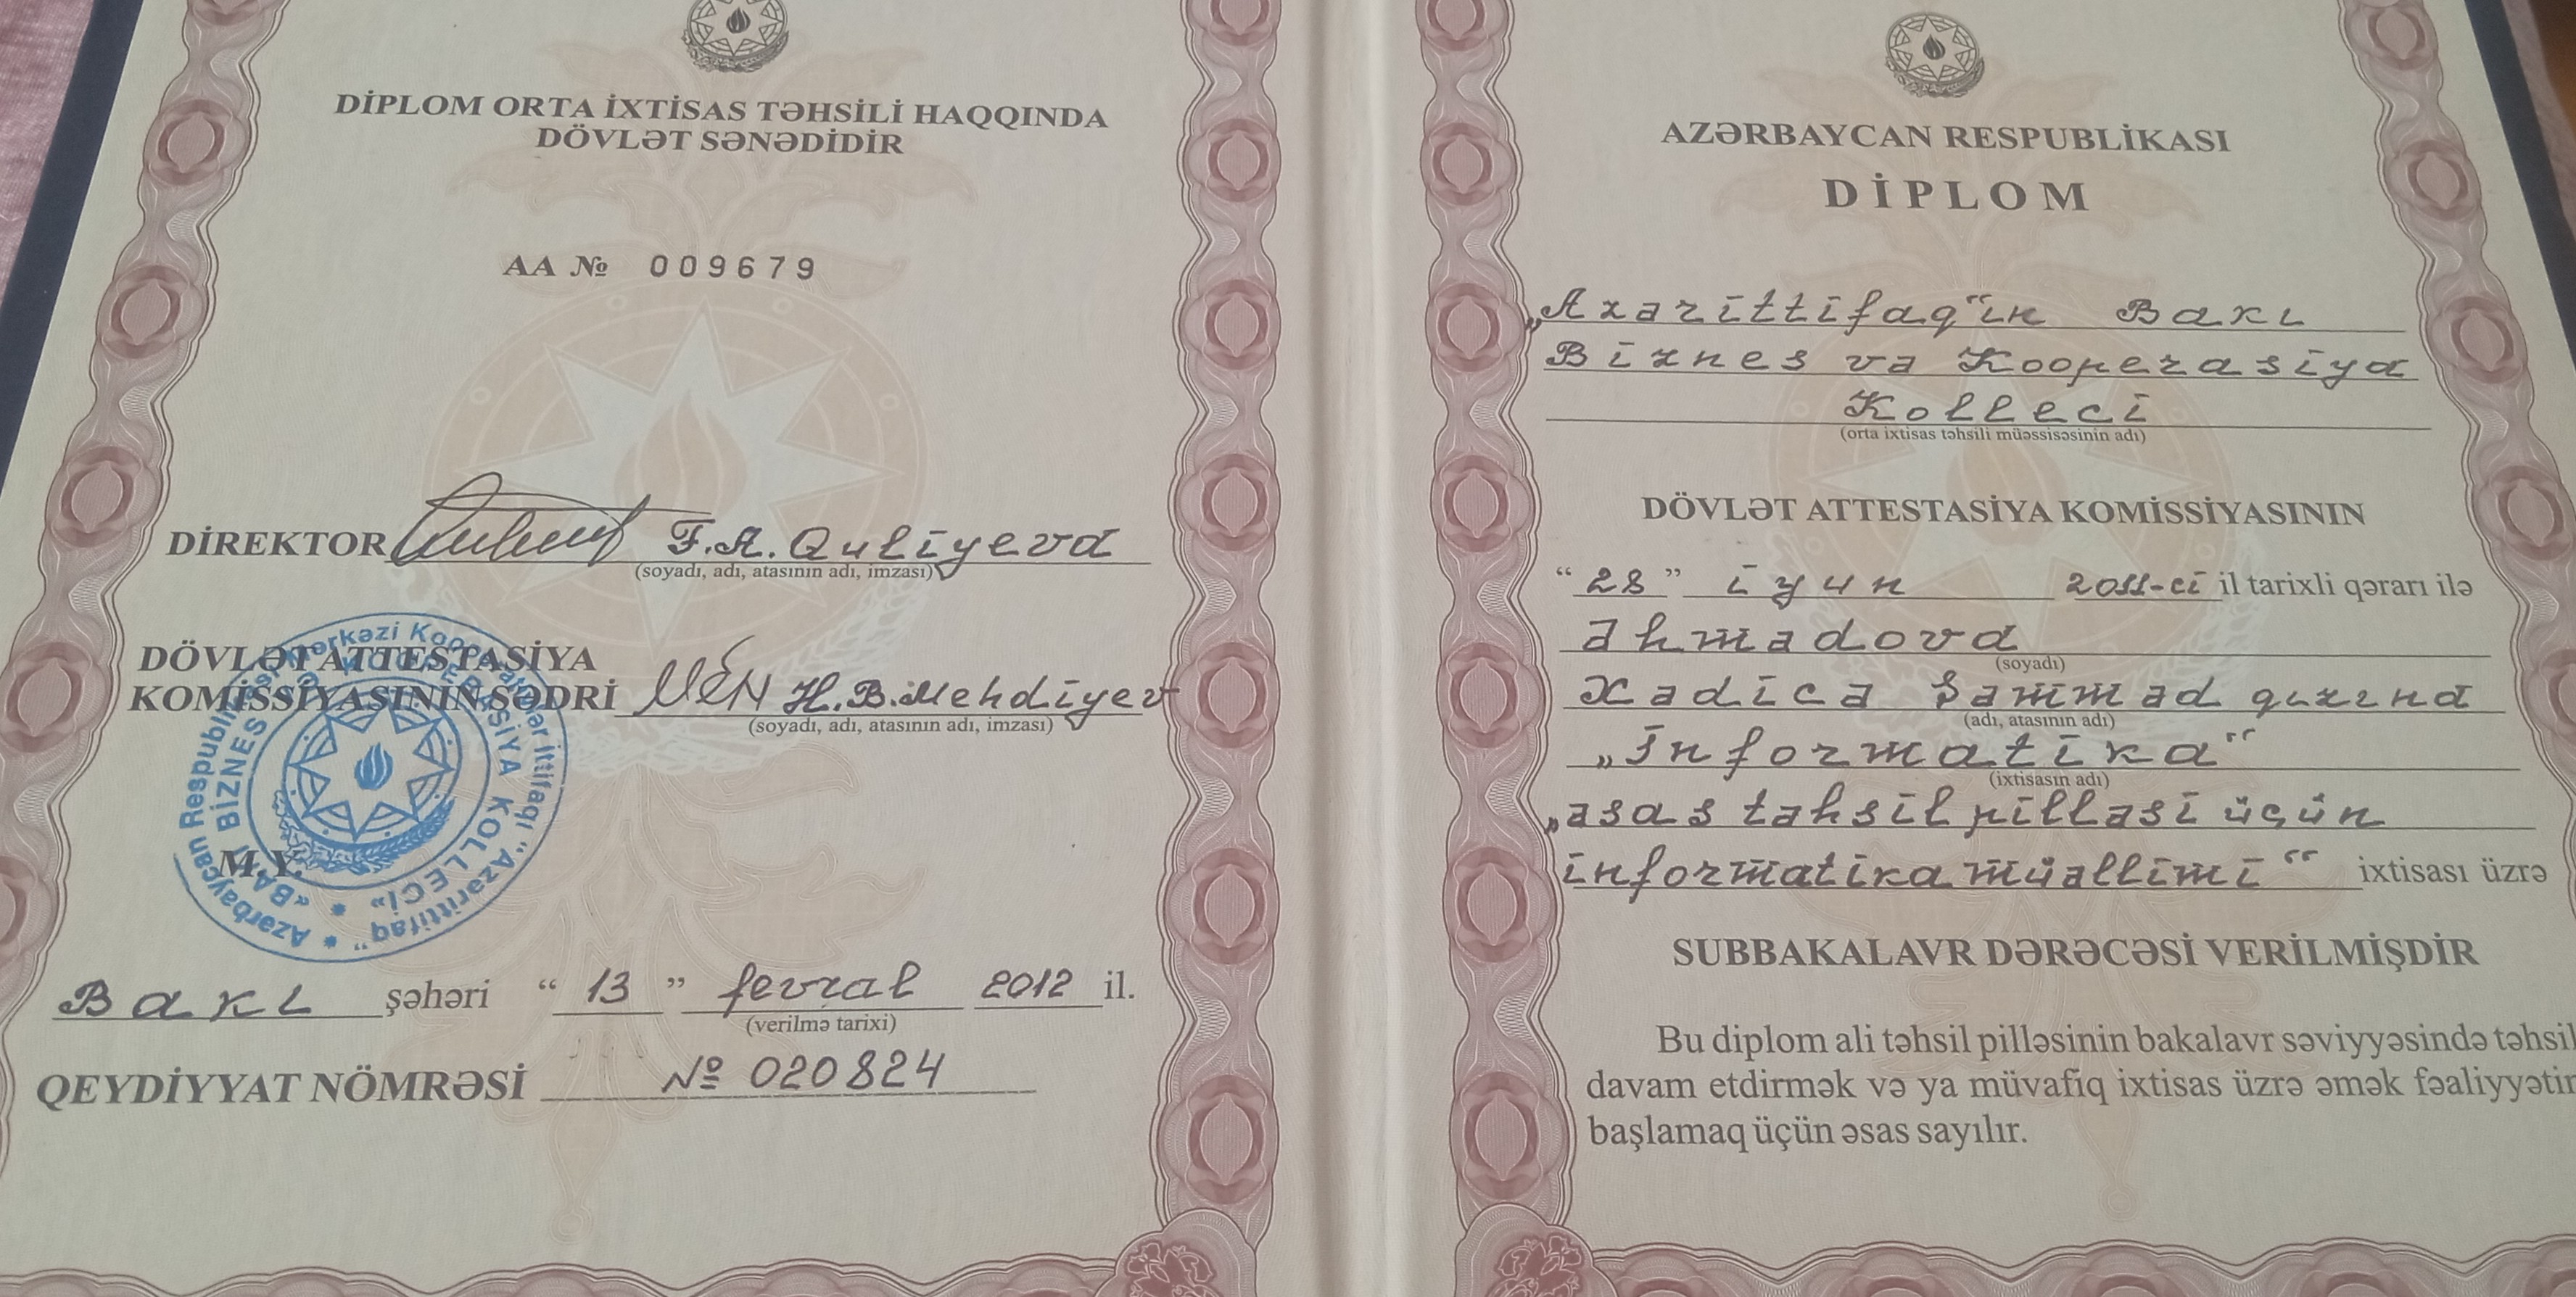 DİPLOM ORTA İXTİSAS TƏHSİLİ HAQQINDA
DÖVLƏT SƏNƏDİDİR
AA № 009679
DİREKTOR F.A.Quliyeva
(soyadı, adı, atasının adı, imzası)
DÖVLƏT ATTESTASİYA
KOMİSSİYASININ SƏDRİ H.B.Mehdiyev
(soyadı, adı, atasının adı, imzası)
M.Y.
Azərbaycan Respublikası Mərkəzi Kooperativlər İttifaqı "Azərittifaq"
«BAKI BİZNES VƏ KOOPERASİYA KOLLECİ»
Bakı şəhəri “13” fevral 2012 il.
(verilmə tarixi)
QEYDİYYAT NÖMRƏSİ № 020824
AZƏRBAYCAN RESPUBLİKASI
DİPLOM
„Azərittifaq“ın Bakı
Biznes və Kooperasiya
Kolleci
(orta ixtisas təhsili müəssisəsinin adı)
DÖVLƏT ATTESTASİYA KOMİSSİYASININ
“28” iyun 2011-ci il tarixli qərarı ilə
Əhmədova
(soyadı)
Xədicə Şəmməd qızına
(adı, atasının adı)
„İnformatika“
(ixtisasın adı)
„əsas təhsil pilləsi üçün
informatika müəllimi“ ixtisası üzrə
SUBBAKALAVR DƏRƏCƏSİ VERİLMİŞDİR
Bu diplom ali təhsil pilləsinin bakalavr səviyyəsində təhsil
davam etdirmək və ya müvafiq ixtisas üzrə əmək fəaliyyətin
başlamaq üçün əsas sayılır.